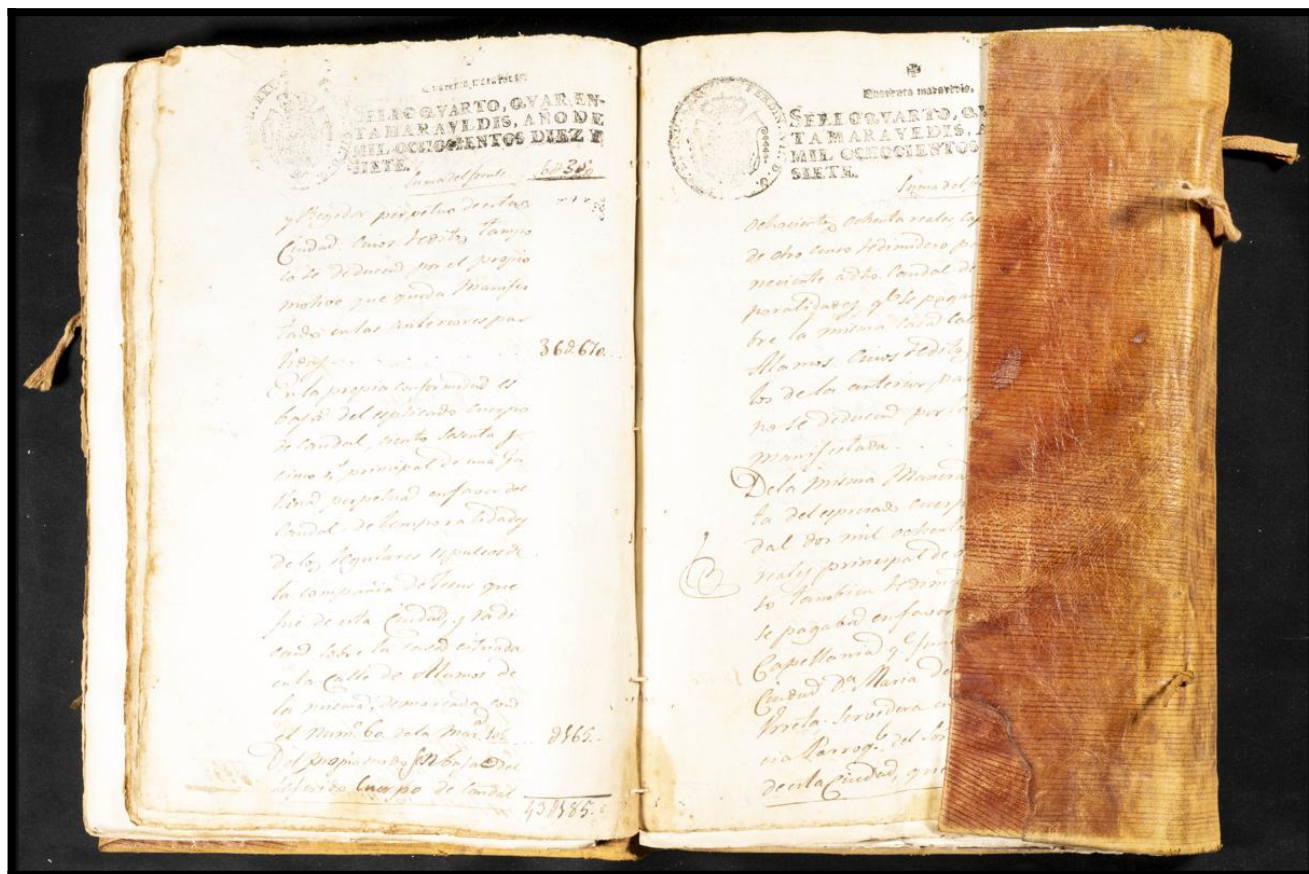 Quarenta maravedis
SELLO QVARTO, QVAREN-
TA MARAVEDIS, AÑO DE
MIL OCHOCIENTOS DIEZ Y
SIETE.
Suma del frente
y Regidor perpetuo de esta
Ciudad: cuios reditos tampo
co se deducen por el propio
motivo que queda manifes
tado en las anteriores par
tidas
36d.670
En la propia conformidad es
baja del esplicado cuerpo
de caudal, ciento sesenta y
cinco rs principal de una ga
llina perpetua en favor del
Caudal de temporalidades
de los regulares espulsos de
la compañia de Jesus que
fue de esta Ciudad, y radi
can sobre la casa situada
en la calle de Alamos de
la misma, demarcada con
el num.º 60 de la manz.
d165
Del propio modo son baja del
referido Cuerpo de Caudal
Quarenta maravedis.
SELLO QVARTO, Q
TA MARAVEDIS, A
MIL OCHOCIENTOS
SIETE.
Suma del
ochocientos ochenta reales, cap
de otro censo redimidero pe
neciente a dho. Caudal de
poralidades, q.e se pagan
bre la misma casa cal
Alamos. Cuios reditos
los de la anterior par
no se deducen por la
manifestada.
De la misma manera
ta del espresado cuerp
dal dos mil ochenta
reales principal de o
so tambien redimi
se pagaban en favor
Capellania q.e fun
Ciudad D.a Maria de
Urrela. Servidera en
cia Parroq.l de los
de esta Ciudad, que